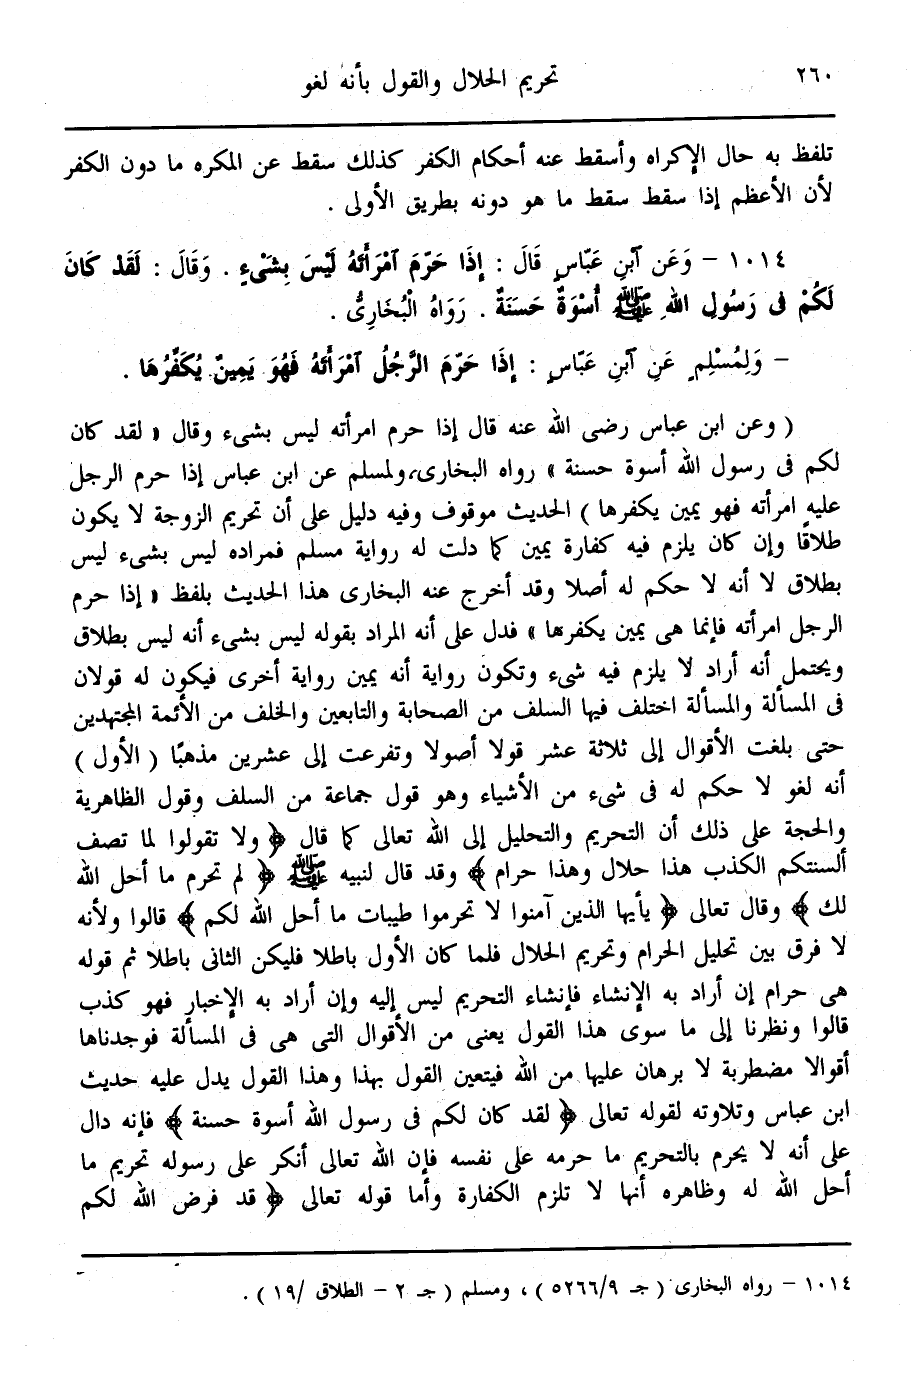 ٢٦٠ تحريم الحلال والقول بأنه لغو
تلفظ به حال الإكراه وأسقط عنه أحكام الكفر كذلك سقط عن المكره ما دون الكفر
لأن الأعظم إذا سقط سقط ما هو دونه بطريق الأولى .
١٠١٤ – وَعَنِ آبْنِ عَبَّاسٍ قَالَ : إِذَا حَرَّمَ آمْرَأَتَهُ لَيْسَ بِشَيْءٍ . وَقَالَ : لَقَدْ كَانَ
لَكُمْ فِى رَسُولِ اللهِ ﷺ أُسْوَةٌ حَسَنَةٌ . رَوَاهُ الْبُخَارِىُّ .
– وَلِمُسْلِمٍ عَنِ آبْنِ عَبَّاسٍ : إِذَا حَرَّمَ الرَّجُلُ آمْرَأَتَهُ فَهُوَ يَمِينٌ يُكَفِّرُهَا .
( وعن ابن عباس رضى الله عنه قال إذا حرم امرأته ليس بشىء وقال « لقد كان
لكم فى رسول الله أسوة حسنة » رواه البخارى،ولمسلم عن ابن عباس إذا حرم الرجل
عليه امرأته فهو يمين يكفرها ) الحديث موقوف وفيه دليل على أن تحريم الزوجة لا يكون
طلاقًا وإن كان يلزم فيه كفارة يمين كما دلت له رواية مسلم فمراده ليس بشىء ليس
بطلاق لا أنه لا حكم له أصلا وقد أخرج عنه البخارى هذا الحديث بلفظ « إذا حرم
الرجل امرأته فإنما هى يمين يكفرها » فدل على أنه المراد بقوله ليس بشىء أنه ليس بطلاق
ويحتمل أنه أراد لا يلزم فيه شىء وتكون رواية أنه يمين رواية أخرى فيكون له قولان
فى المسألة والمسألة اختلف فيها السلف من الصحابة والتابعين والخلف من الأئمة المجتهدين
حتى بلغت الأقوال إلى ثلاثة عشر قولا أصولا وتفرعت إلى عشرين مذهبًا ( الأول )
أنه لغو لا حكم له فى شىء من الأشياء وهو قول جماعة من السلف وقول الظاهرية
والحجة على ذلك أن التحريم والتحليل إلى الله تعالى كما قال ﴿ ولا تقولوا لما تصف
ألسنتكم الكذب هذا حلال وهذا حرام ﴾ وقد قال لنبيه ﷺ ﴿ لم تحرم ما أحل الله
لك ﴾ وقال تعالى ﴿ يأيها الذين آمنوا لا تحرموا طيبات ما أحل الله لكم ﴾ قالوا ولأنه
لا فرق بين تحليل الحرام وتحريم الحلال فلما كان الأول باطلا فليكن الثانى باطلا ثم قوله
هى حرام إن أراد به الإنشاء فإنشاء التحريم ليس إليه وإن أراد به الإخبار فهو كذب
قالوا ونظرنا إلى ما سوى هذا القول يعنى من الأقوال التى هى فى المسألة فوجدناها
أقوالا مضطربة لا برهان عليها من الله فيتعين القول بهذا وهذا القول يدل عليه حديث
ابن عباس وتلاوته لقوله تعالى ﴿ لقد كان لكم فى رسول الله أسوة حسنة ﴾ فإنه دال
على أنه لا يحرم بالتحريم ما حرمه على نفسه فإن الله تعالى أنكر على رسوله تحريم ما
أحل الله له وظاهره أنها لا تلزم الكفارة وأما قوله تعالى ﴿ قد فرض الله لكم
١٠١٤ – رواه البخارى ( جـ ٥٢٦٦/٩ ) ، ومسلم ( جـ ٢ – الطلاق /١٩ ) .